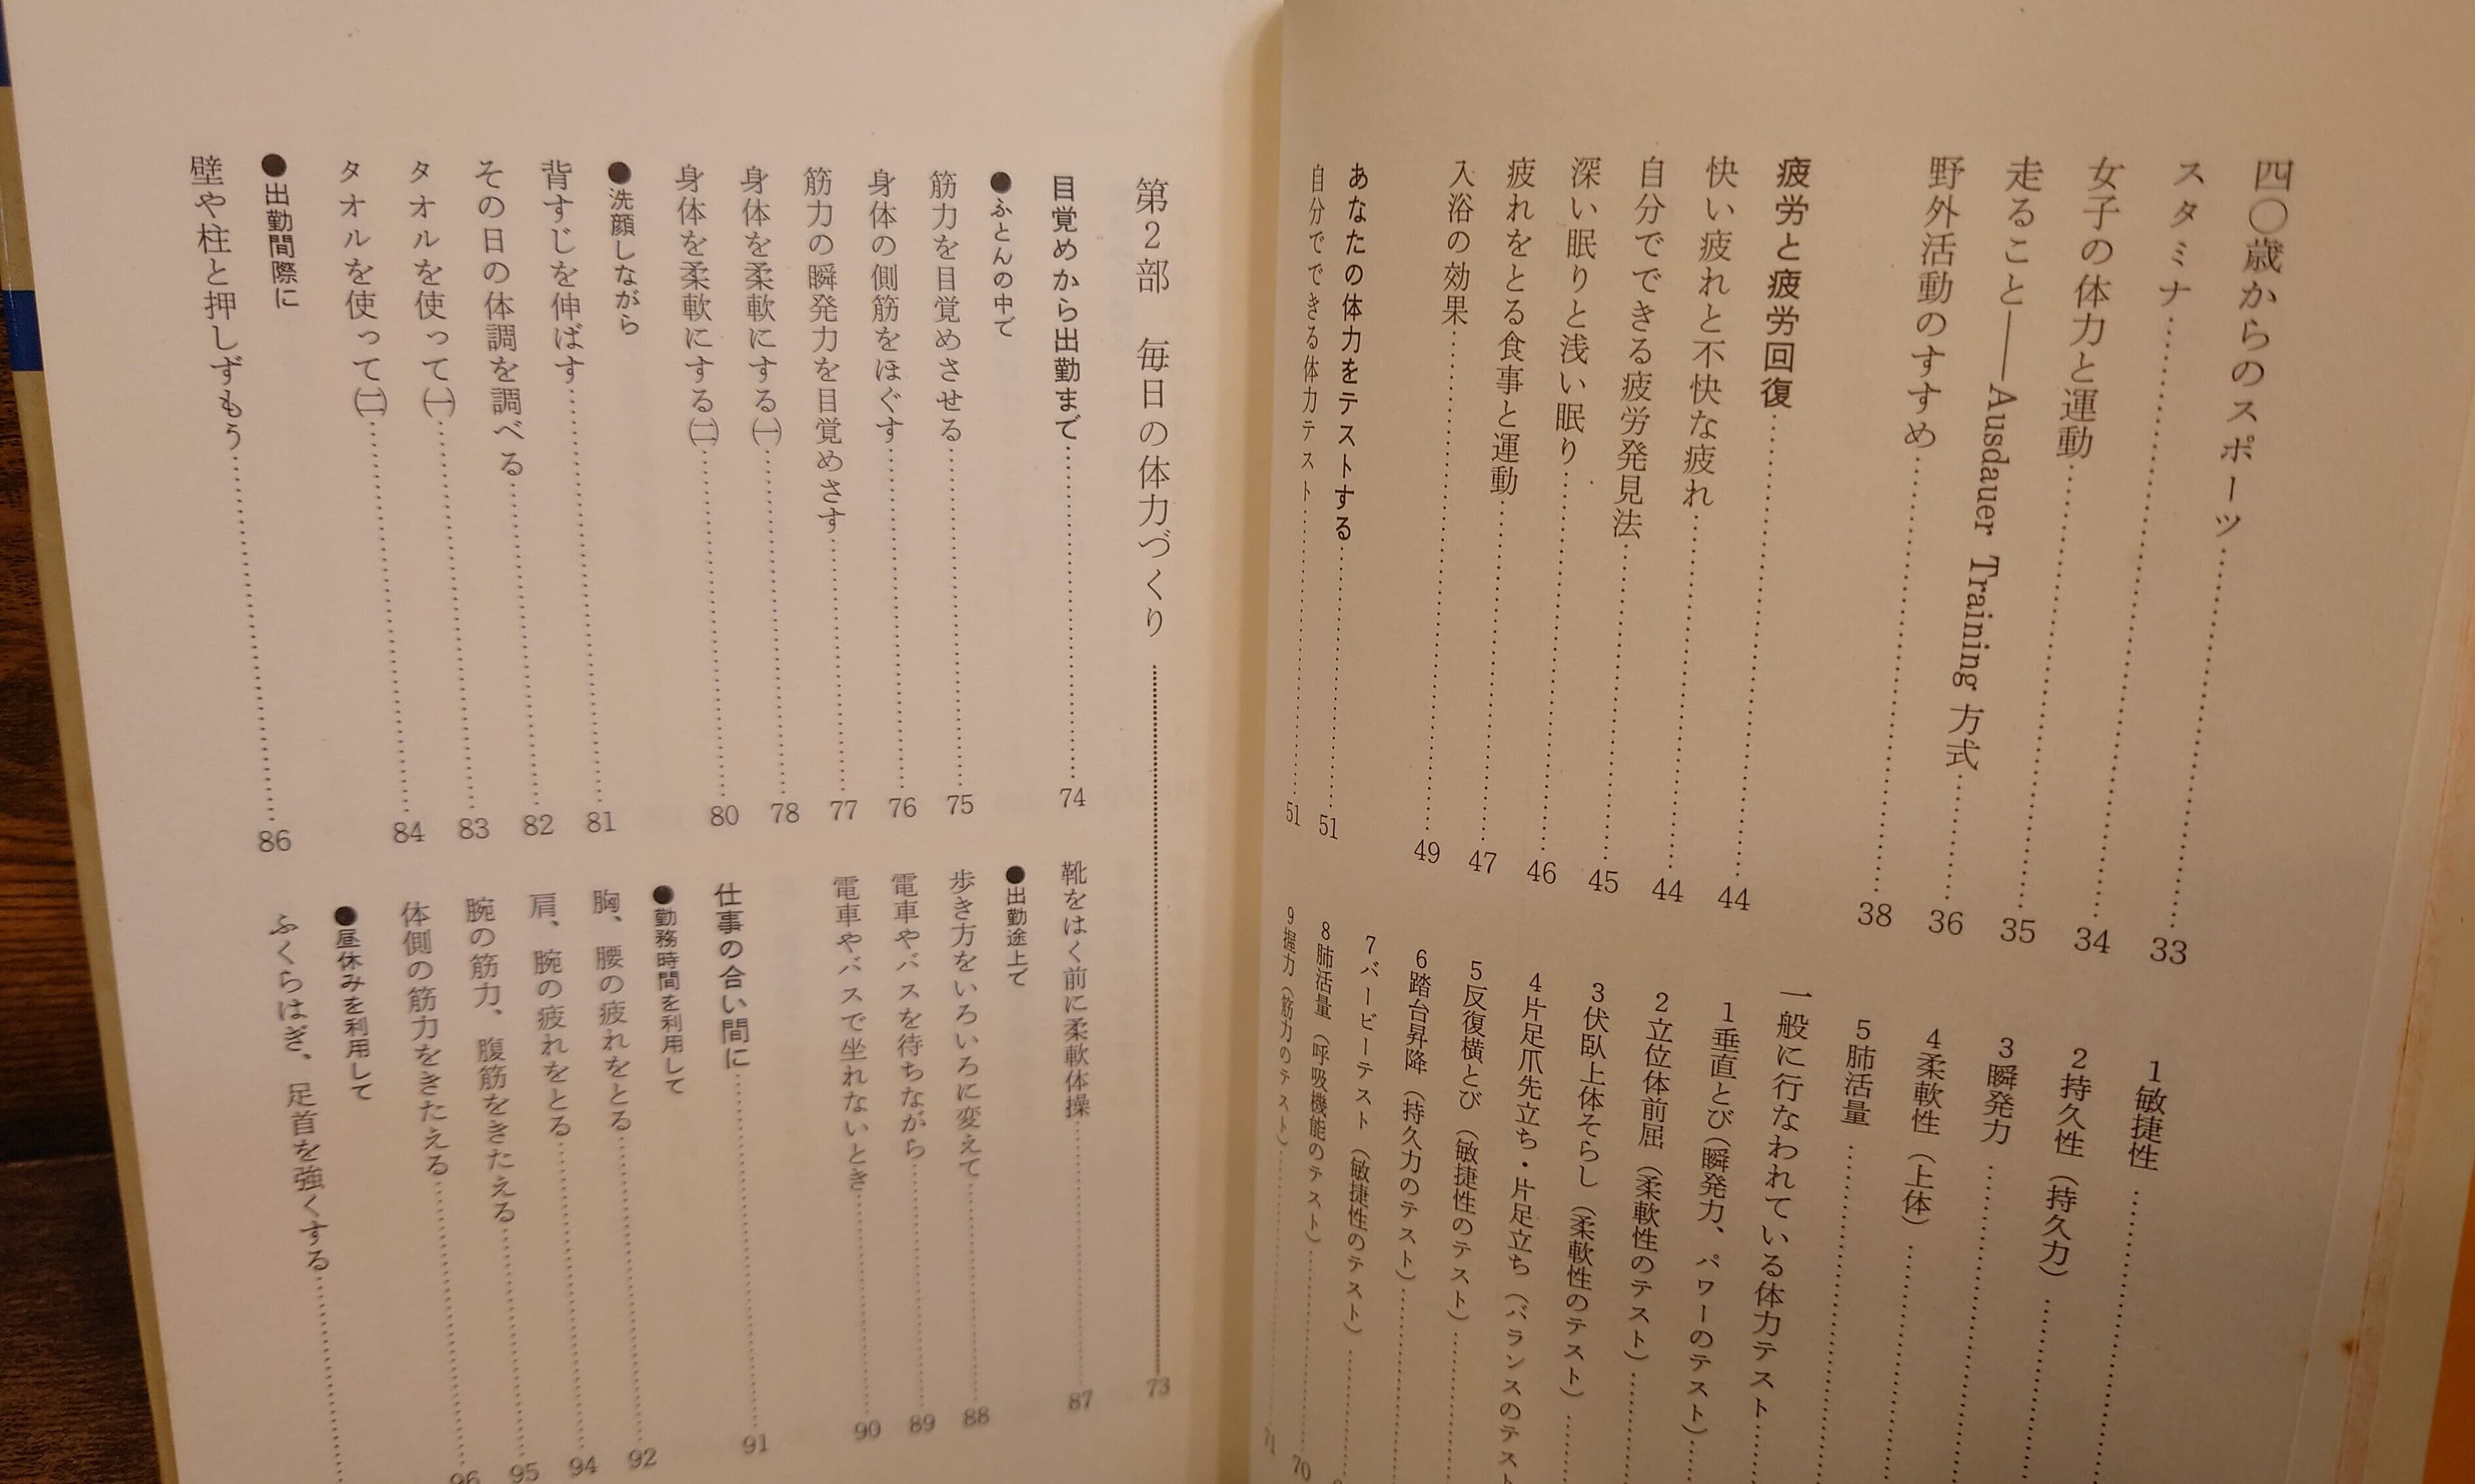 四〇歳からのスポーツ……33
スタミナ……34
女子の体力と運動……35
走ること――Ausdauer Training 方式……36
野外活動のすすめ……38
疲労と疲労回復……44
快い疲れと不快な疲れ……44
自分でできる疲労発見法……45
深い眠りと浅い眠り……46
疲れをとる食事と運動……47
入浴の効果……49
あなたの体力をテストする……51
自分でできる体力テスト……51
1敏捷性……
2持久性（持久力）……
3瞬発力……
4柔軟性（上体）……
5肺活量……
一般に行なわれている体力テスト……
1垂直とび（瞬発力、パワーのテスト）……
2立位体前屈（柔軟性のテスト）……
3伏臥上体そらし（柔軟性のテスト）……
4片足爪先立ち・片足立ち（バランスのテスト
5反復横とび（敏捷性のテスト）……
6踏台昇降（持久力のテスト）……
7バービーテスト（敏捷性のテスト）……
8肺活量（呼吸機能のテスト）……70
9握力（筋力のテスト）……71
第2部 毎日の体力づくり……73
目覚めから出勤まで……74
●ふとんの中で
筋力を目覚めさせる……75
身体の側筋をほぐす……76
筋力の瞬発力を目覚めさす……77
身体を柔軟にする㈠……78
身体を柔軟にする㈡……80
●洗顔しながら
背すじを伸ばす……81
その日の体調を調べる……82
タオルを使って㈠……83
タオルを使って㈡……84
●出勤間際に
壁や柱と押しずもう……86
靴をはく前に柔軟体操……87
●出勤途上で
歩き方をいろいろに変えて……88
電車やバスを待ちながら……89
電車やバスで坐れないとき……90
仕事の合い間に……91
●勤務時間を利用して
胸、腰の疲れをとる……92
肩、腕の疲れをとる……94
腕の筋力、腹筋をきたえる……95
体側の筋力をきたえる……96
●昼休みを利用して
ふくらはぎ、足首を強くする……